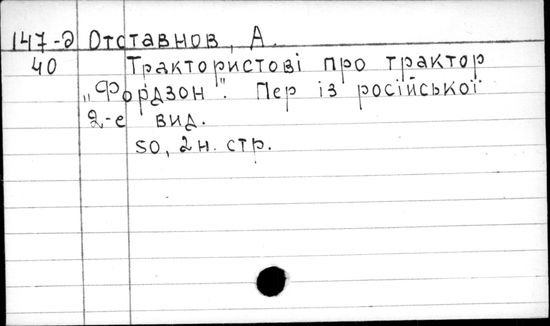 147-д Отставнов, А.
40 Трактористові про трактор
„Фордзон". Пер із російської
2-е вид.
50, 2 н. стр.